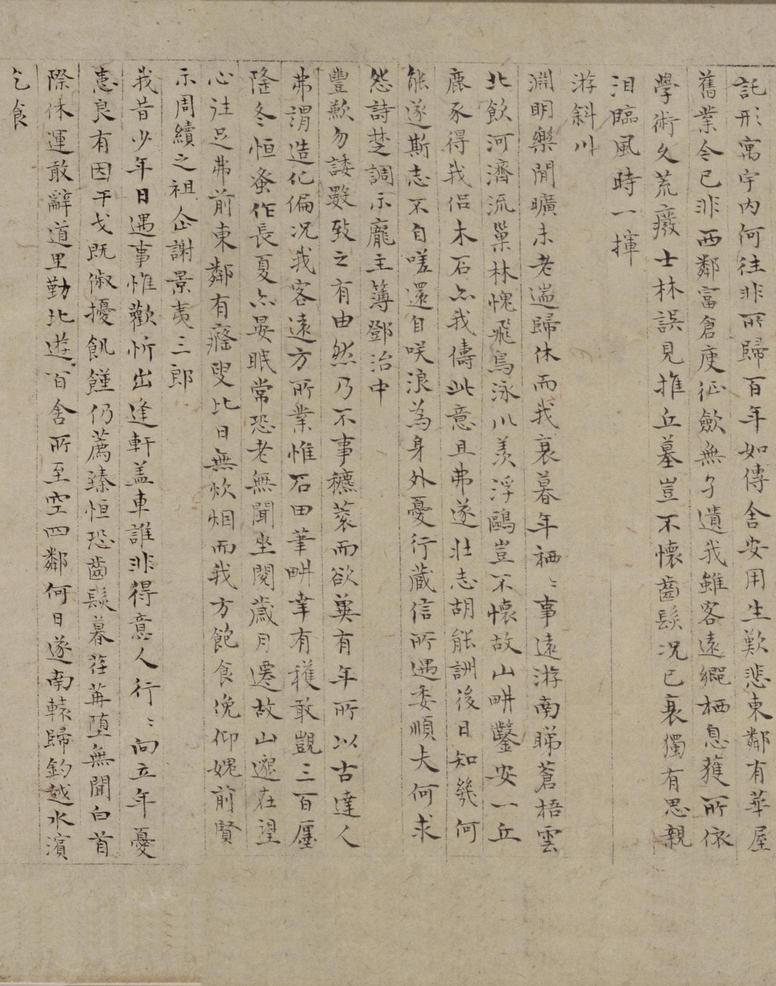 託形寓宇内何往非所歸百年如傳舍安用生歎悲東鄰有華屋
舊業今已非西鄰富倉庾征斂無孑遺我雖客遠鄉栖息獲所依
學術久荒癈士林誤見推丘墓豈不懷齒髮况已衰獨有思親
泪臨風時一揮
游斜川
淵明樂閒曠未老遄歸休而我衰暮年栖〻事遠游南睇蒼梧雲
北飲河濟流巢林愧飛鳥泳川羡浮鷗豈不懷故山畊鑿安一丘
鹿豕得我侣木石亦我儔此意且弗遂壯志胡能詶後日知幾何
能遂斯志不自嗟還自咲浪為身外憂行藏信所遇委順夫何求
怨詩楚調示龐主簿鄧治中
豐歉勿諉數致之有由然乃不事穮蓘而欲冀有年所以古達人
弗謂造化偏况我客遠方所業惟石田筆畊幸有穫敢覬三百廛
隆冬恒蚤作長夏亦晏眠常恐老無聞坐閱歲月遷故山邈在望
心注足弗前東鄰有癃叟比日無炊烟而我方飽食俛仰媿前賢
示周續之祖企謝景夷三郎
我昔少年日遇事惟歡忻出逢軒盖車誰非得意人行〻向立年憂
恚良有因干戈既俶擾飢饉仍薦臻恒恐齒髮暮荏苒墮無聞白首
際休運敢辭道里勤北遊百舍所至空四鄰何日遂南轅歸釣越水濱
乞食